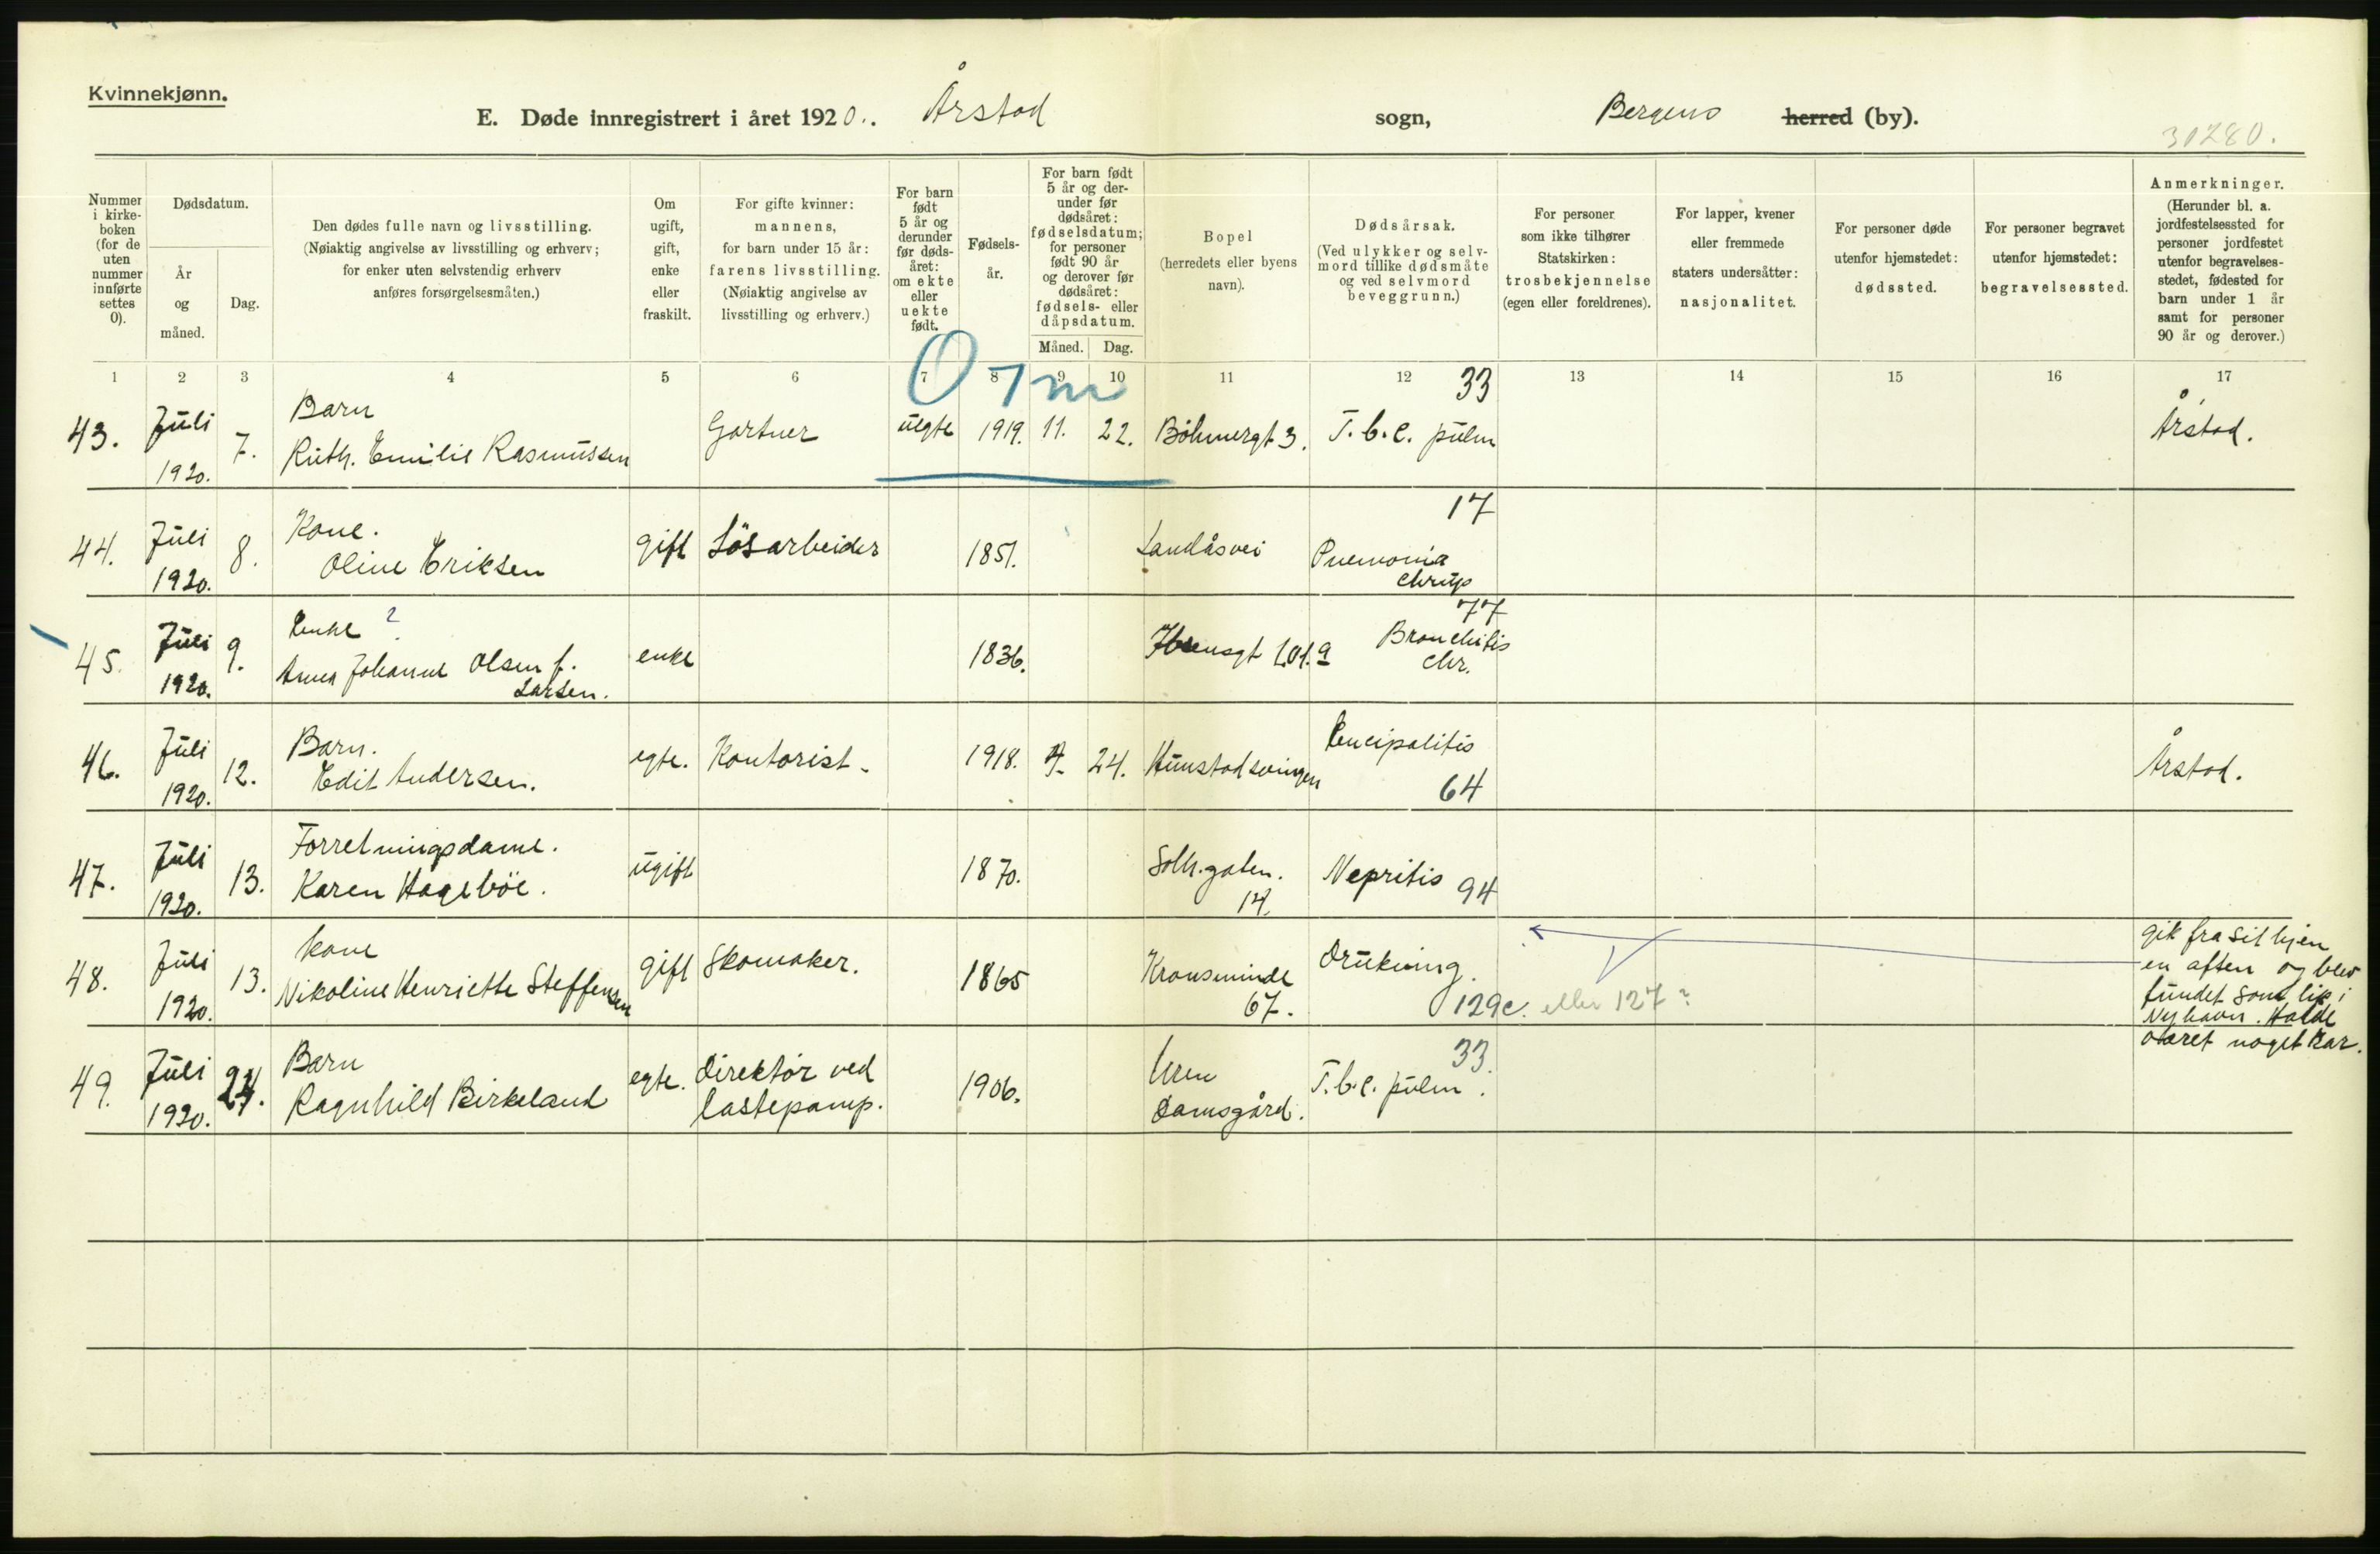 Kvinnekjønn.
E. Døde innregistrert i året 1920.. Årstad sogn, Bergens herred (by).
31280.
Nummer i kirke-boken (for de uten nummer innførte settes 0).
Dødsdatum.
År og måned.
Dag.
Den dødes fulle navn og livsstilling.
(Nøiaktig angivelse av livsstilling og erhverv;
for enker uten selvstendig erhverv
anføres forsørgelsesmåten.)
Om ugift, gift, enke eller fraskilt.
For gifte kvinner:
mannens,
for barn under 15 år:
farens livsstilling.
(Nøiaktig angivelse av
livsstilling og erhverv.)
For barn født 5 år og derunder før døds-året: om ekte eller uekte født.
Fødsels-år.
For barn født 5 år og der-under før dødsåret: fødselsdatum; for personer født 90 år og derover før dødsåret: fødsels- eller dåpsdatum.
Måned. Dag.
Bopel
(herredets eller byens
navn).
Dødsårsak.
(Ved ulykker og selv-
mord tillike dødsmåte
og ved selvmord
beveggrunn.)
For personer
som ikke tilhører
Statskirken:
trosbekjennelse
(egen eller foreldrenes).
For lapper, kvener
eller fremmede
staters undersåtter:
nasjonalitet.
For personer døde
utenfor hjemstedet:
dødssted.
For personer begravet
utenfor hjemstedet:
begravelsessted.
Anmerkninger.
(Herunder bl. a.
jordfestelsessted for
personer jordfestet
utenfor begravelses-
stedet, fødested for
barn under 1 år
samt for personer
90 år og derover.)
1 2 3 4 5 6 7 8 9 10 11 12 13 14 15 16 17
0 7 m
33
43. Juli 1920. 7. Barn
Ruth. Emilie Rasmussen Gartner uegte 1919. 11. 22. Böhmergt 3. T.b.c. pulm Årstad.
17
44. Juli 1920. 8. Kone.
Oline Eriksen gift Lösarbeider 1851. Landåsvei Pnemonia
chrup
77
45. Juli 1920. 9. Enke ?
Anna Johanne Olsen f.
Larsen. enke 1836. Ibsensgt 101.a Bronchitis
chr.
46. Juli 1920. 12. Barn.
Edit Andersen. egte. Kontorist. 1918. 4. 24. Hunstadsvingen Encipalitis
64 Årstad.
47. Juli 1920. 13. Forretningsdame.
Karen Hageböe. ugift 1870. Solh.gaten.
14. Nepritis 94
48. Juli 1920. 13. kone
Nikoline Henriette Steffensen gift Skomaker. 1865 Kronsminde
67. Drukning.
129c. eller 127?
gik fra sit hjem
en aften og blev
fundet som lik i
Nyhavn. Hadde
været noget rar.
49. Juli 1920. 24. Barn
Ragnhild Birkeland egte. direktör ved
lastepamp. 1906. Uren
Damsgård. 33.
T.b.c. pulm.